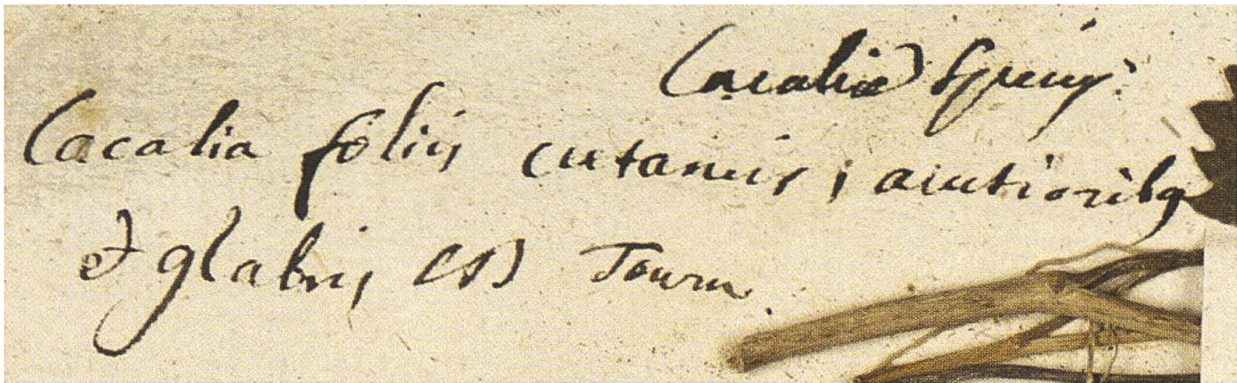 Cacaliæ Species.
Cacalia foliis cutaneis, acutioribq
& glabris CB Tourn